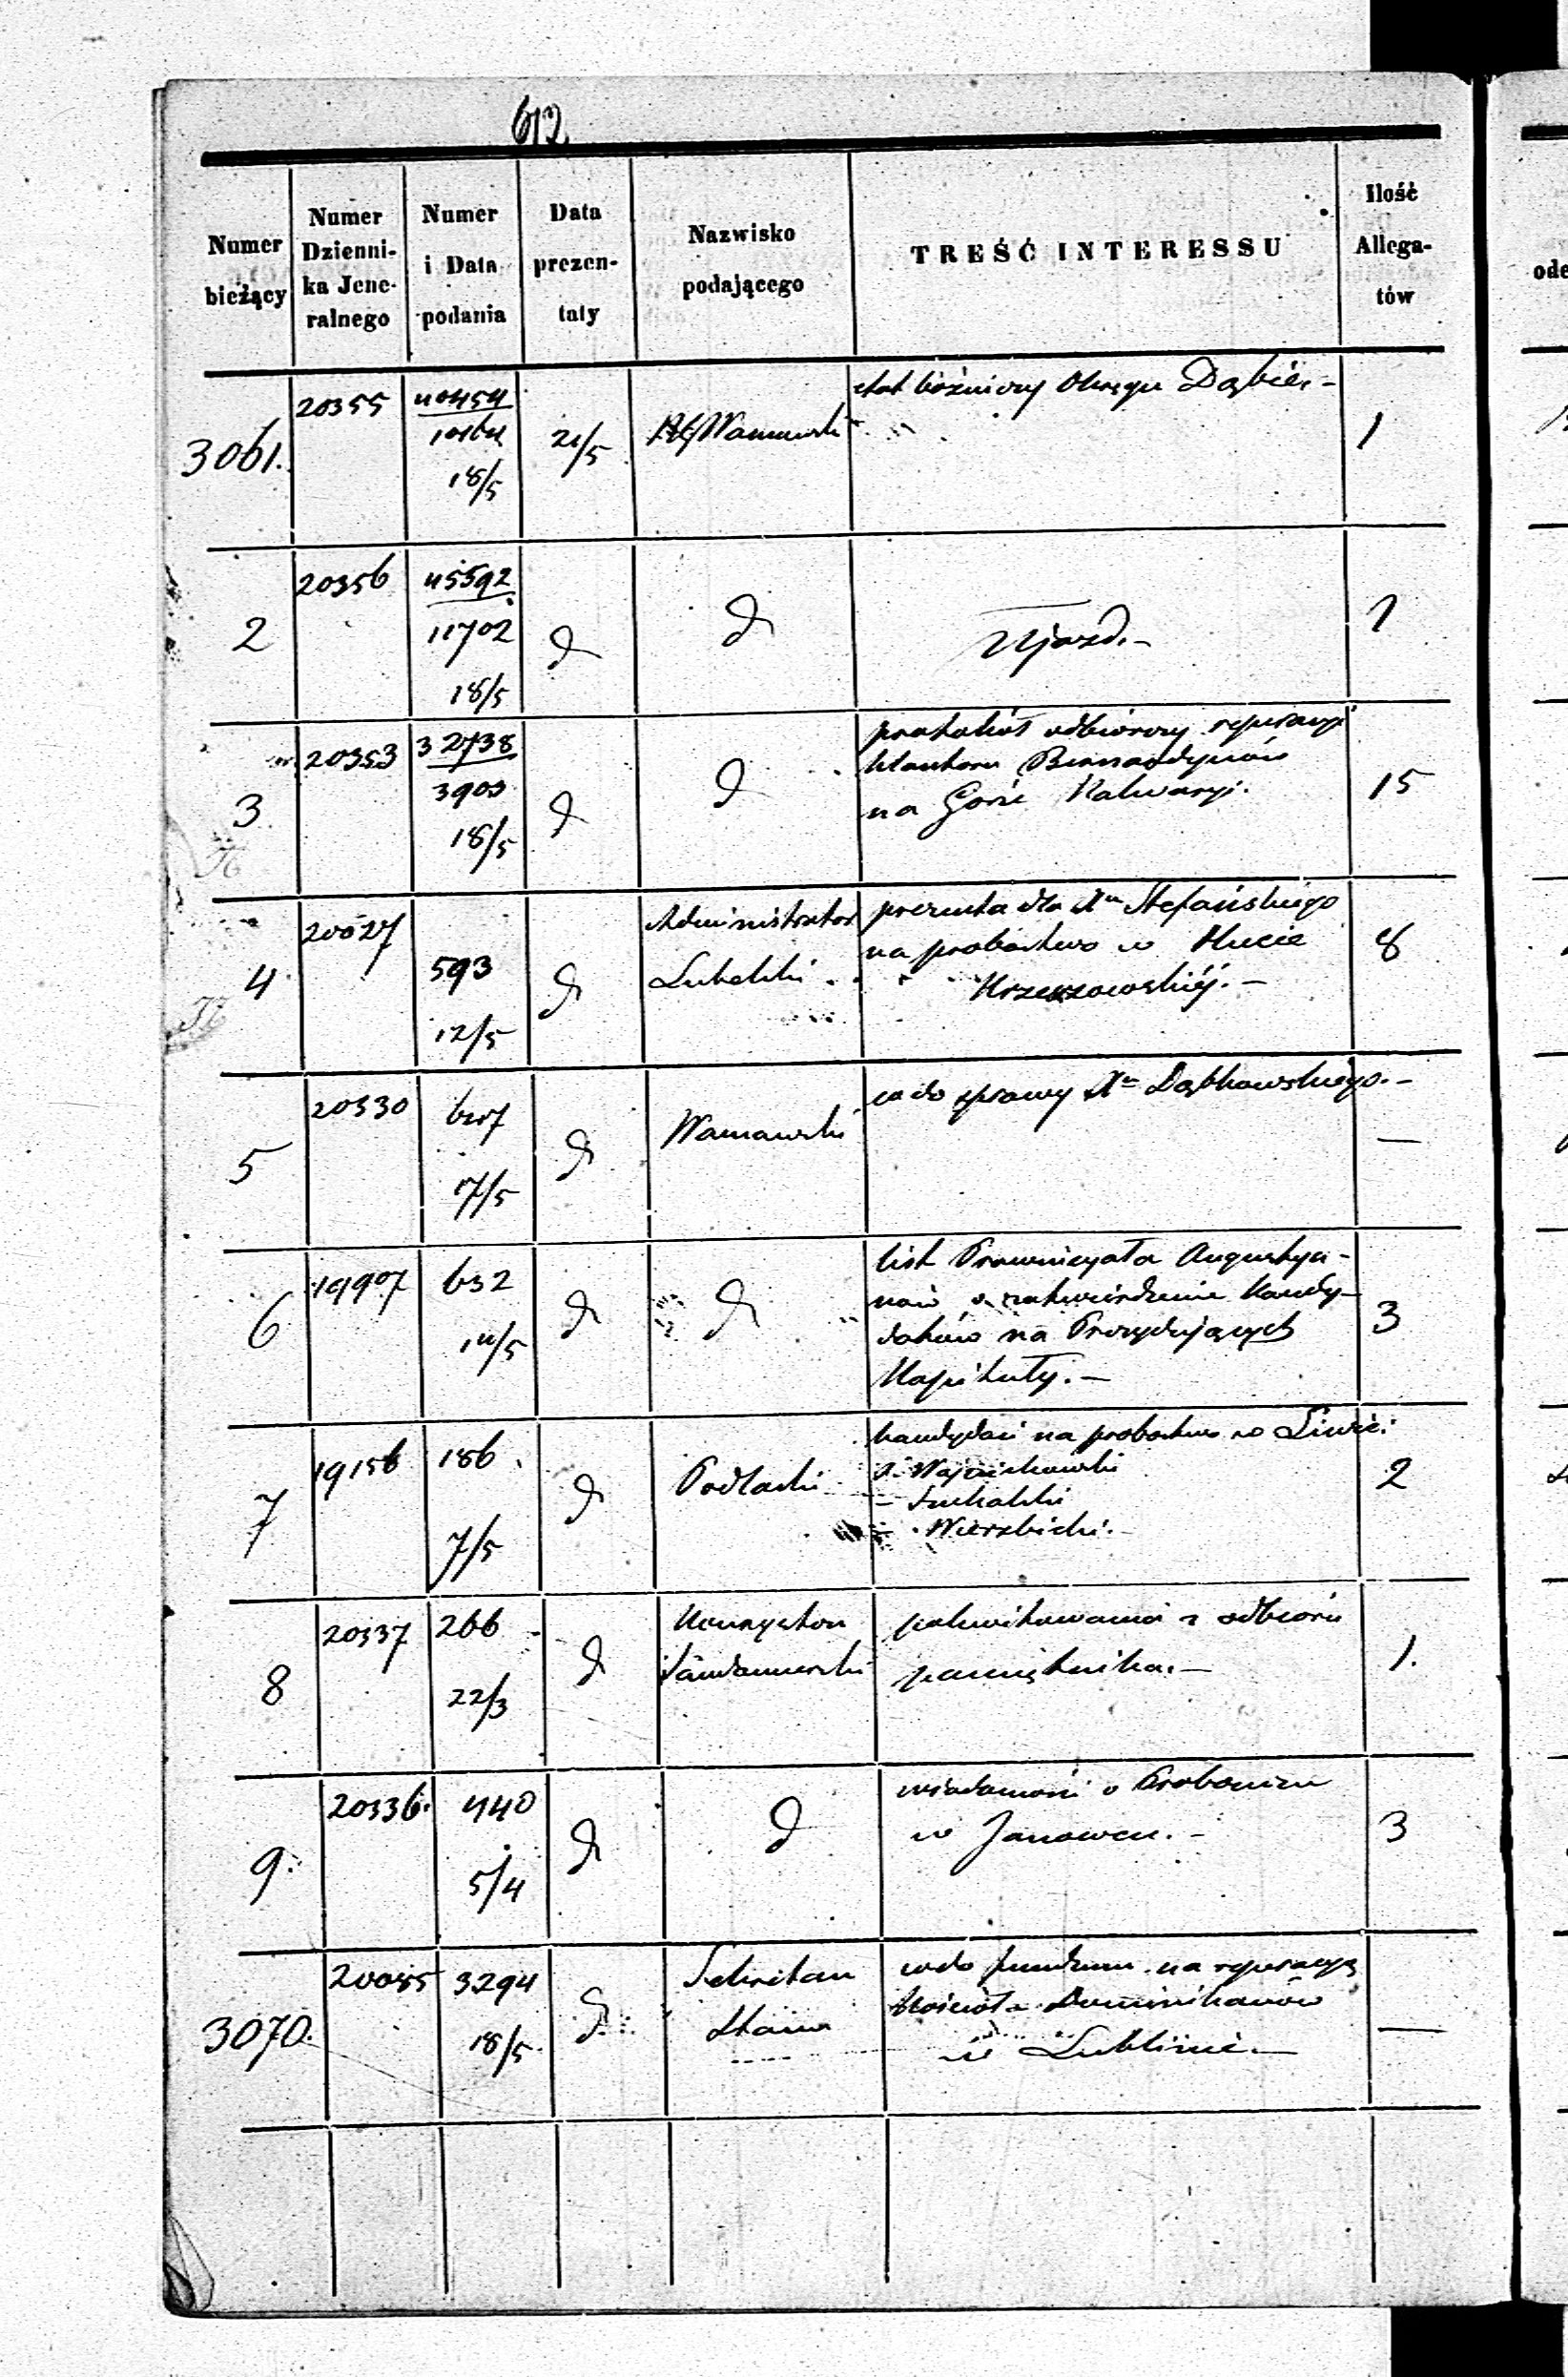 612
Numer bieżący
Numer Dzienni- ka Jene- ralnego
Numer i Data podania
Data prezen- taty
Nazwisko podającego
TREŚĆ INTERESSU
Ilość Allega- tów
3061. 20355 40454 18/5 21/5 Warszawski etat bóżniczy Okręgu Dąbie.- 1
2 20356 45592 11702 18/5 d d Ujazd.- 1
3 20353 32738 3903 18/5 d d protokół odbiorczy reperacyi
klasztoru Bernardynów
na Górze Kalwaryi.
15
4 20027 593 12/5 d Administrator
Lubelski
prezenta dla Xa Stefańskiego
na probostwo w Hucie
Krzeszowskiéj.-
8
5 20330 627 17/5 d Warszawski co do sprawy Xa Dąbkowskiego.- —
6 19907 632 14/5 d d list Prowincyała Augustya-
nów o zatwierdzenie Kandy-
datów na Prezydujących
Kapituły.-
3
7 19156 186 7/5 d Podlaski kandydaci na probostwo w Liwie:
X. Wojciechowski
- Suchalski
- Wierzbicki.-
2
8 20337 266 22/3 d Konsystorz
Sandomierski
pokwitowania z odbioru
pamiętnika.-
1.
9. 20336. 440 5/4 d d wiadomość o Proboszczu
w Janowcu.-
3
3070. 20045 3294 18/5 d Sekretarz
Stanu
co do funduszu na reperacyą
kościoła Dominikanów
w Lublinie.-
—